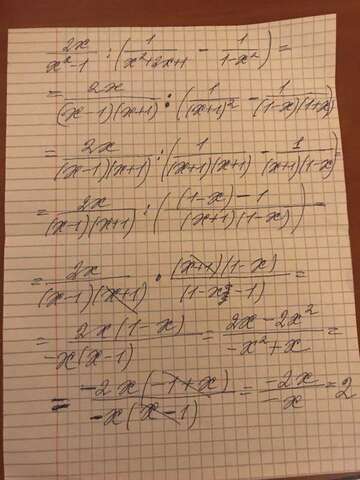 2x / (x²-1) : (1 / (x²+2x+1) - 1 / (1-x²)) =
= 2x / ((x-1)(x+1)) : (1 / (x+1)² - 1 / ((1-x)(1+x)))
= 2x / ((x-1)(x+1)) : (1 / ((x+1)(x+1)) - 1 / ((x+1)(1-x)))
= 2x / ((x-1)(x+1)) : (((1-x)-1) / ((x+1)(1-x))) =
= 2x / ((x-1)(x+1)) · (x+1)(1-x) / (1-x-1) =
= 2x(1-x) / (-x(x-1)) = (2x-2x²) / (-x²+x) =
= -2x(-1+x) / (-x(x-1)) = -2x / -x = 2